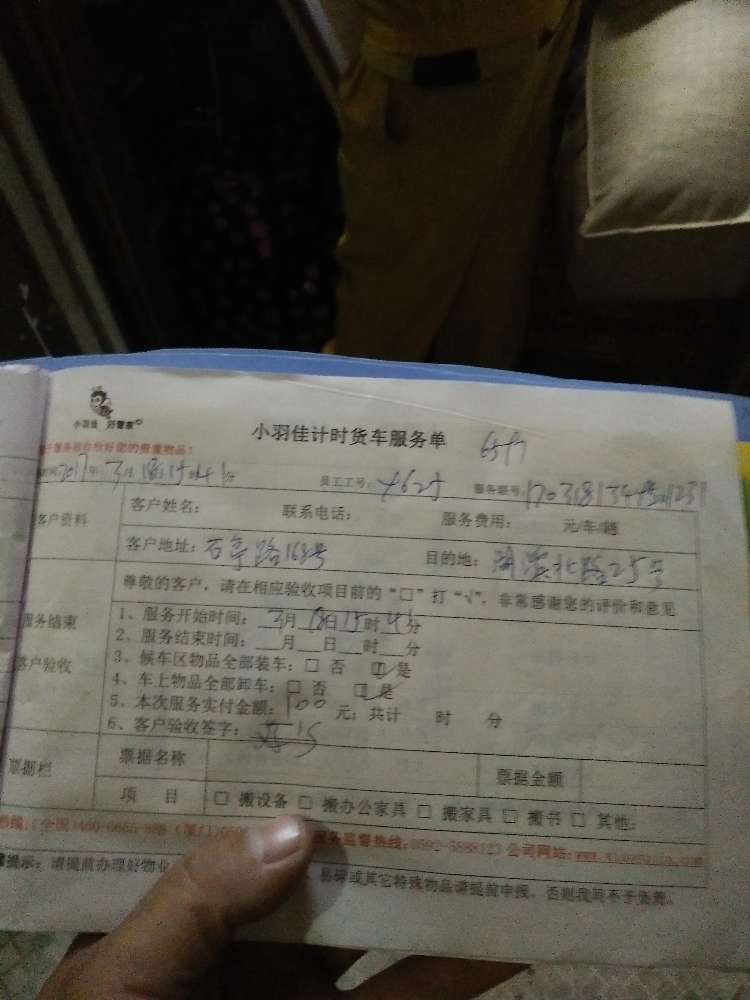 小羽佳 好管家
小羽佳计时货车服务单
服务前收检好您的贵重物品！
时间：2017年3月18日15时41分 员工工号：4625 服务联号：
客户资料 客户姓名： 联系电话： 服务费用： 元/车/趟
客户地址：石亭路168号 目的地：湖滨北路25号
尊敬的客户，请在相应验收项目前的“□”打“√”，非常感谢您的评价和意见
服务结束
客户验收
1、服务开始时间：3月18日15时41分
2、服务结束时间：___月___日___时___分
3、候车区物品全部装车：□ 否 ☑ 是
4、车上物品全部卸车：□ 否 ☑ 是
5、本次服务实付金额：100 元；共计 时 分
6、客户验收签字：
票据栏 票据名称 票据金额
项 目 □ 搬设备 □ 搬办公家具 □ 搬家具 □ 搬书 □ 其他：
热线：（全国）400-6666-888（厦门） 服务监督热线：0592-5888123 公司网站：
提示：请提前办理好物业 易碎或其它特殊物品请提前申报，否则我司不予负责。